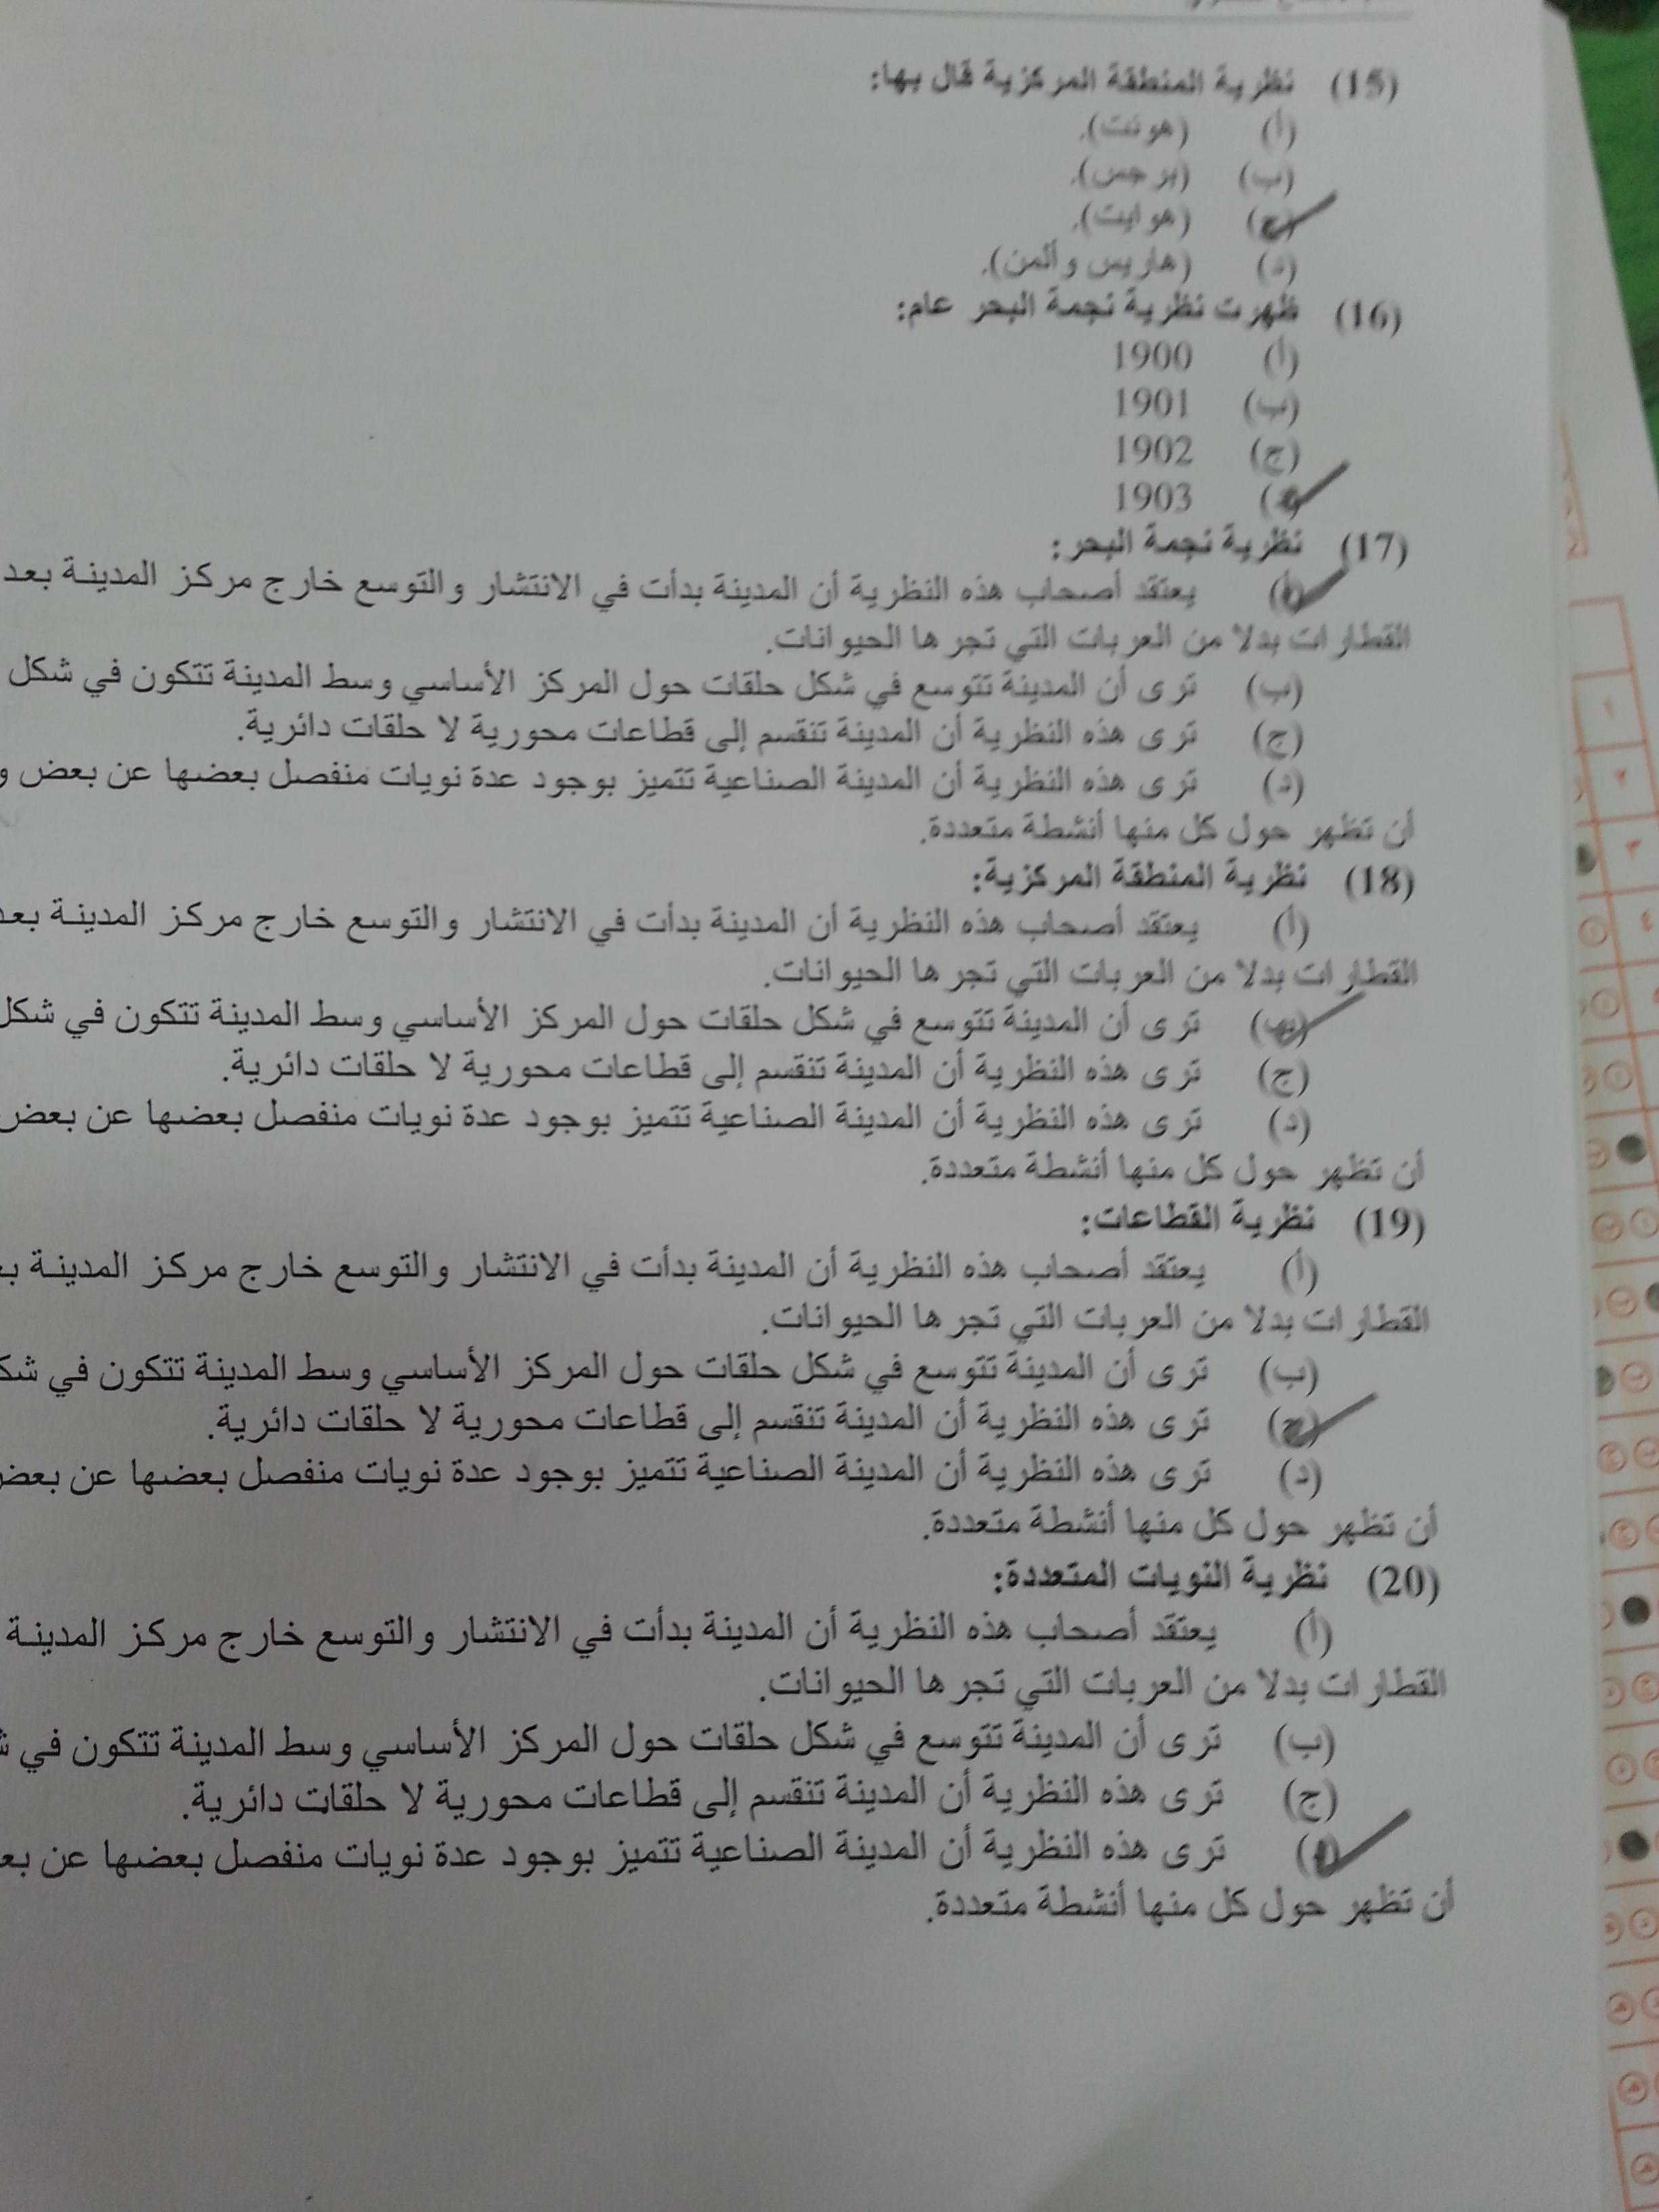 (15) نظرية المنطقة المركزية قال بها:
(أ) (هونت).
(ب) (برجس).
(ج) (هوايت).
(د) (هاريس وألمن).
(16) ظهرت نظرية نجمة البحر عام:
(أ) 1900
(ب) 1901
(ج) 1902
(د) 1903
(17) نظرية نجمة البحر:
(أ) يعتقد أصحاب هذه النظرية أن المدينة بدأت في الانتشار والتوسع خارج مركز المدينة بعد
القطارات بدلا من العربات التي تجرها الحيوانات.
(ب) ترى أن المدينة تتوسع في شكل حلقات حول المركز الأساسي وسط المدينة تتكون في شكل
(ج) ترى هذه النظرية أن المدينة تنقسم إلى قطاعات محورية لا حلقات دائرية.
(د) ترى هذه النظرية أن المدينة الصناعية تتميز بوجود عدة نويات منفصل بعضها عن بعض و
أن تظهر حول كل منها أنشطة متعددة.
(18) نظرية المنطقة المركزية:
(أ) يعتقد أصحاب هذه النظرية أن المدينة بدأت في الانتشار والتوسع خارج مركز المدينة بعد
القطارات بدلا من العربات التي تجرها الحيوانات.
(ب) ترى أن المدينة تتوسع في شكل حلقات حول المركز الأساسي وسط المدينة تتكون في شكل
(ج) ترى هذه النظرية أن المدينة تنقسم إلى قطاعات محورية لا حلقات دائرية.
(د) ترى هذه النظرية أن المدينة الصناعية تتميز بوجود عدة نويات منفصل بعضها عن بعض
أن تظهر حول كل منها أنشطة متعددة.
(19) نظرية القطاعات:
(أ) يعتقد أصحاب هذه النظرية أن المدينة بدأت في الانتشار والتوسع خارج مركز المدينة
القطارات بدلا من العربات التي تجرها الحيوانات.
(ب) ترى أن المدينة تتوسع في شكل حلقات حول المركز الأساسي وسط المدينة تتكون في
(ج) ترى هذه النظرية أن المدينة تنقسم إلى قطاعات محورية لا حلقات دائرية.
(د) ترى هذه النظرية أن المدينة الصناعية تتميز بوجود عدة نويات منفصل بعضها عن بعض
أن تظهر حول كل منها أنشطة متعددة.
(20) نظرية النويات المتعددة:
(أ) يعتقد أصحاب هذه النظرية أن المدينة بدأت في الانتشار والتوسع خارج مركز المدينة
القطارات بدلا من العربات التي تجرها الحيوانات.
(ب) ترى أن المدينة تتوسع في شكل حلقات حول المركز الأساسي وسط المدينة تتكون في
(ج) ترى هذه النظرية أن المدينة تنقسم إلى قطاعات محورية لا حلقات دائرية.
(د) ترى هذه النظرية أن المدينة الصناعية تتميز بوجود عدة نويات منفصل بعضها عن
أن تظهر حول كل منها أنشطة متعددة.